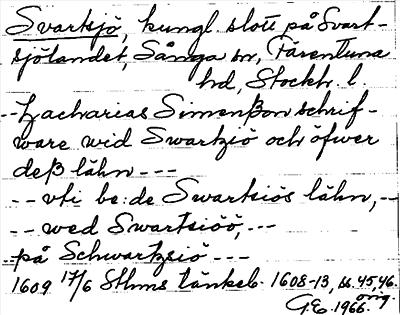 Svartsjö, kungl. slott på Svart-
sjölandet, Sånga sn, Färentuna
hd, Stockh. l.
-- Zacharias Simenßon schrif-
ware wid Swartziö och öfwer
deß lähn ---
-- vti be:de Swartsiös lähn, --
-- wed Swartsiöö, ---
på Schwartzsiö ---
1609 17/6 Sthms tänkeb. 1608-13, ss. 45, 46.
orig.
G.E. 1966.